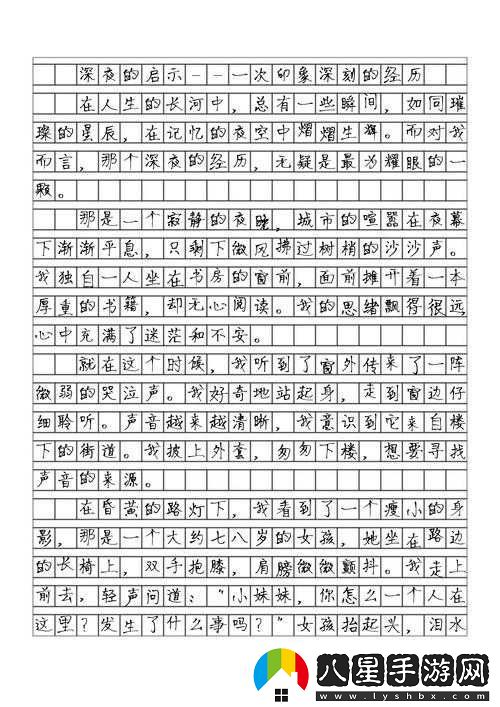 深夜的启示——一次印象深刻的经历
在人生的长河中，总有一些瞬间，如同璀
璨的星辰，在记忆的夜空中熠熠生辉。而对我
而言，那个深夜的经历，无疑是最为耀眼的一
颗。
那是一个寂静的夜晚，城市的喧嚣在夜幕
下渐渐平息，只剩下微风拂过树梢的沙沙声。
我独自一人坐在书房的窗前，面前摊开着一本
厚重的书籍，却无心阅读。我的思绪飘得很远
心中充满了迷茫和不安。
就在这个时候，我听到了窗外传来了一阵
微弱的哭泣声。我好奇地站起身，走到窗边仔
细聆听。声音越来越清晰，我意识到它来自楼
下的街道。我披上外套，匆匆下楼，想要寻找
声音的来源。
在昏黄的路灯下，我看到了一个瘦小的身
影，那是一个大约七八岁的女孩，她坐在路边
的长椅上，双手抱膝，肩膀微微颤抖。我走上
前去，轻声问道：“小妹妹，你怎么一个人在
这里？发生了什么事吗？”女孩抬起头，泪水
八星手游网
www.lyshbx.com